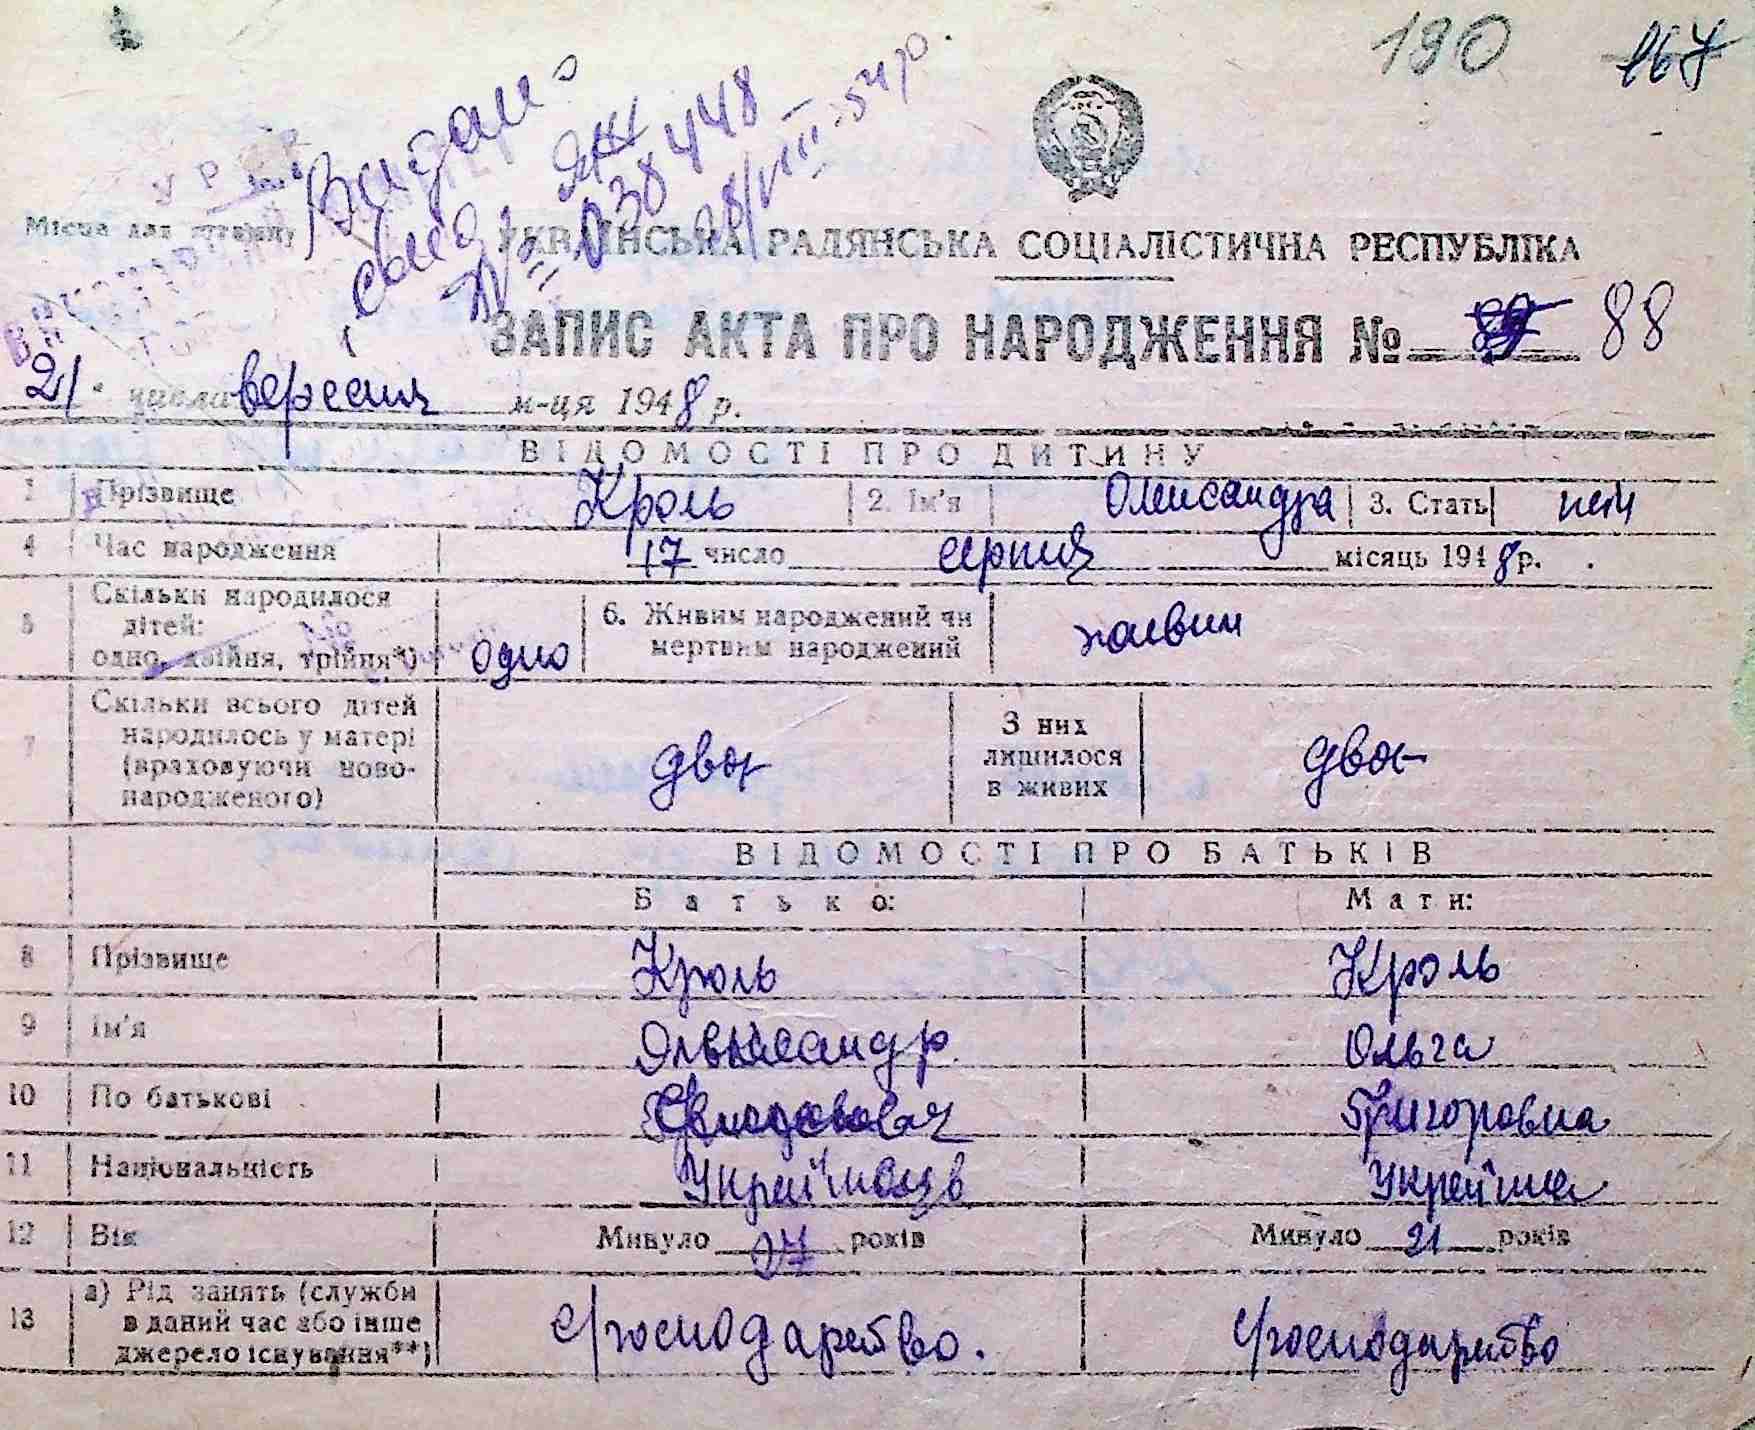 190 167
Видано
свід. ЯЖ
№ 038448
28/VIII-54 р.
Місце для штампу
УКРАЇНСЬКА РАДЯНСЬКА СОЦІАЛІСТИЧНА РЕСПУБЛІКА
ЗАПИС АКТА ПРО НАРОДЖЕННЯ № 88
21 числа вересня м-ця 1948 р.
ВІДОМОСТІ ПРО ДИТИНУ
1 Прізвище Кроль 2. Ім'я Олександра 3. Стать
4 Час народження 17 число серпня місяць 1948 р.
5 Скільки народилося
дітей:
одно, двійня, трійня*) одно
6. Живим народжений чи
мертвим народжений живим
7 Скільки всього дітей
народилось у матері
(враховуючи ново-
народженого) двоє
З них
лишилося
в живих двоє
ВІДОМОСТІ ПРО БАТЬКІВ
Батько: Мати:
8 Прізвище Кроль Кроль
9 Ім'я Ольга
10 По батькові Григоровна
11 Національність
12 Вік Минуло 27 років Минуло 21 років
13 а) Рід занять (служби
в даний час або інше
джерело існування**) с/господарство. с/господарство